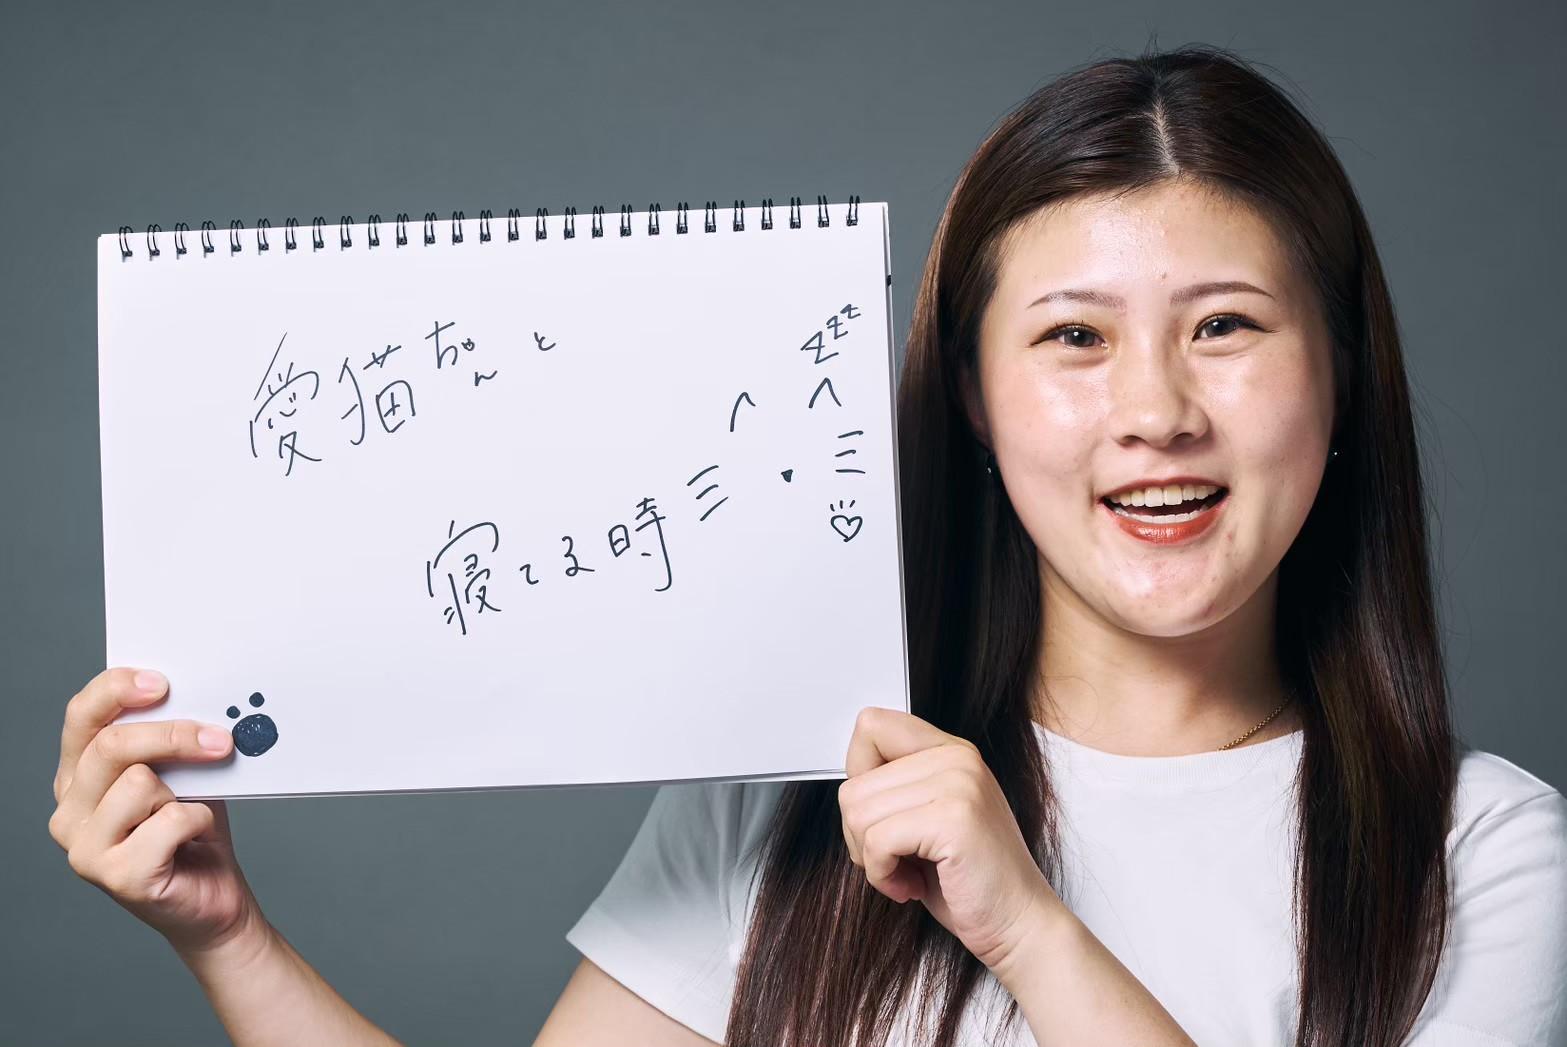 愛猫ちゃんと
寝てる時
zzz